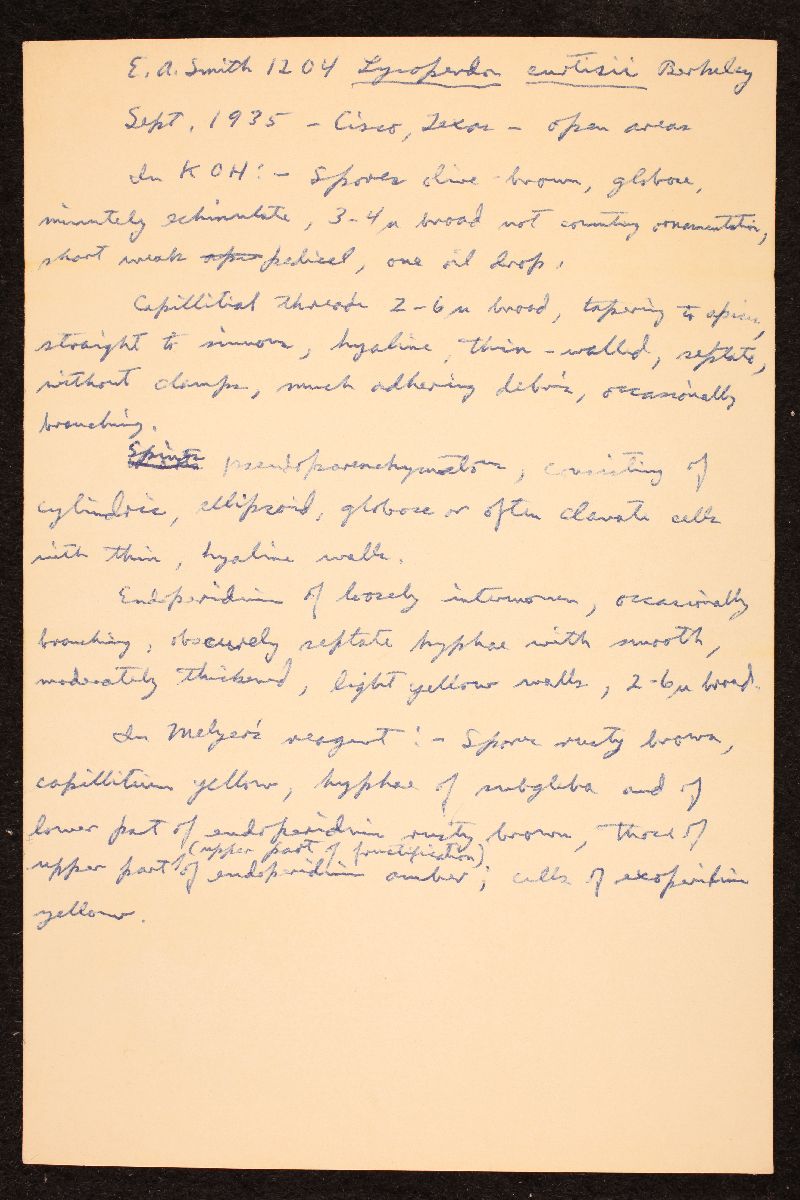 E. A. Smith 1204 Lycoperdon curtisii Berkeley
Sept. 1935 - Cisco, Texas - open areas
In KOH: - Spores olive-brown, globose,
minutely echinulate, 3-4 µ broad not counting ornamentation,
short weak pedicel, one oil drop.
Capillitial threads 2-6 µ broad, tapering to apices,
straight to sinuous, hyaline, thin-walled, septate,
without clamps, much adhering debris, occasionally
branching.
Spines pseudoparenchymatous, consisting of
cylindric, ellipsoid, globose or often clavate cells
with thin, hyaline walls.
Endoperidium of loosely interwoven, occasionally
branching, obscurely septate hyphae with smooth,
moderately thickened, light yellow walls, 2-6 µ broad.
In Melzer's reagent: - Spores rusty brown,
capillitium yellow, hyphae of subgleba and of
lower part of endoperidium rusty brown, those of
(upper part of fructification)
upper part of endoperidium amber; cells of exoperidium
yellow.